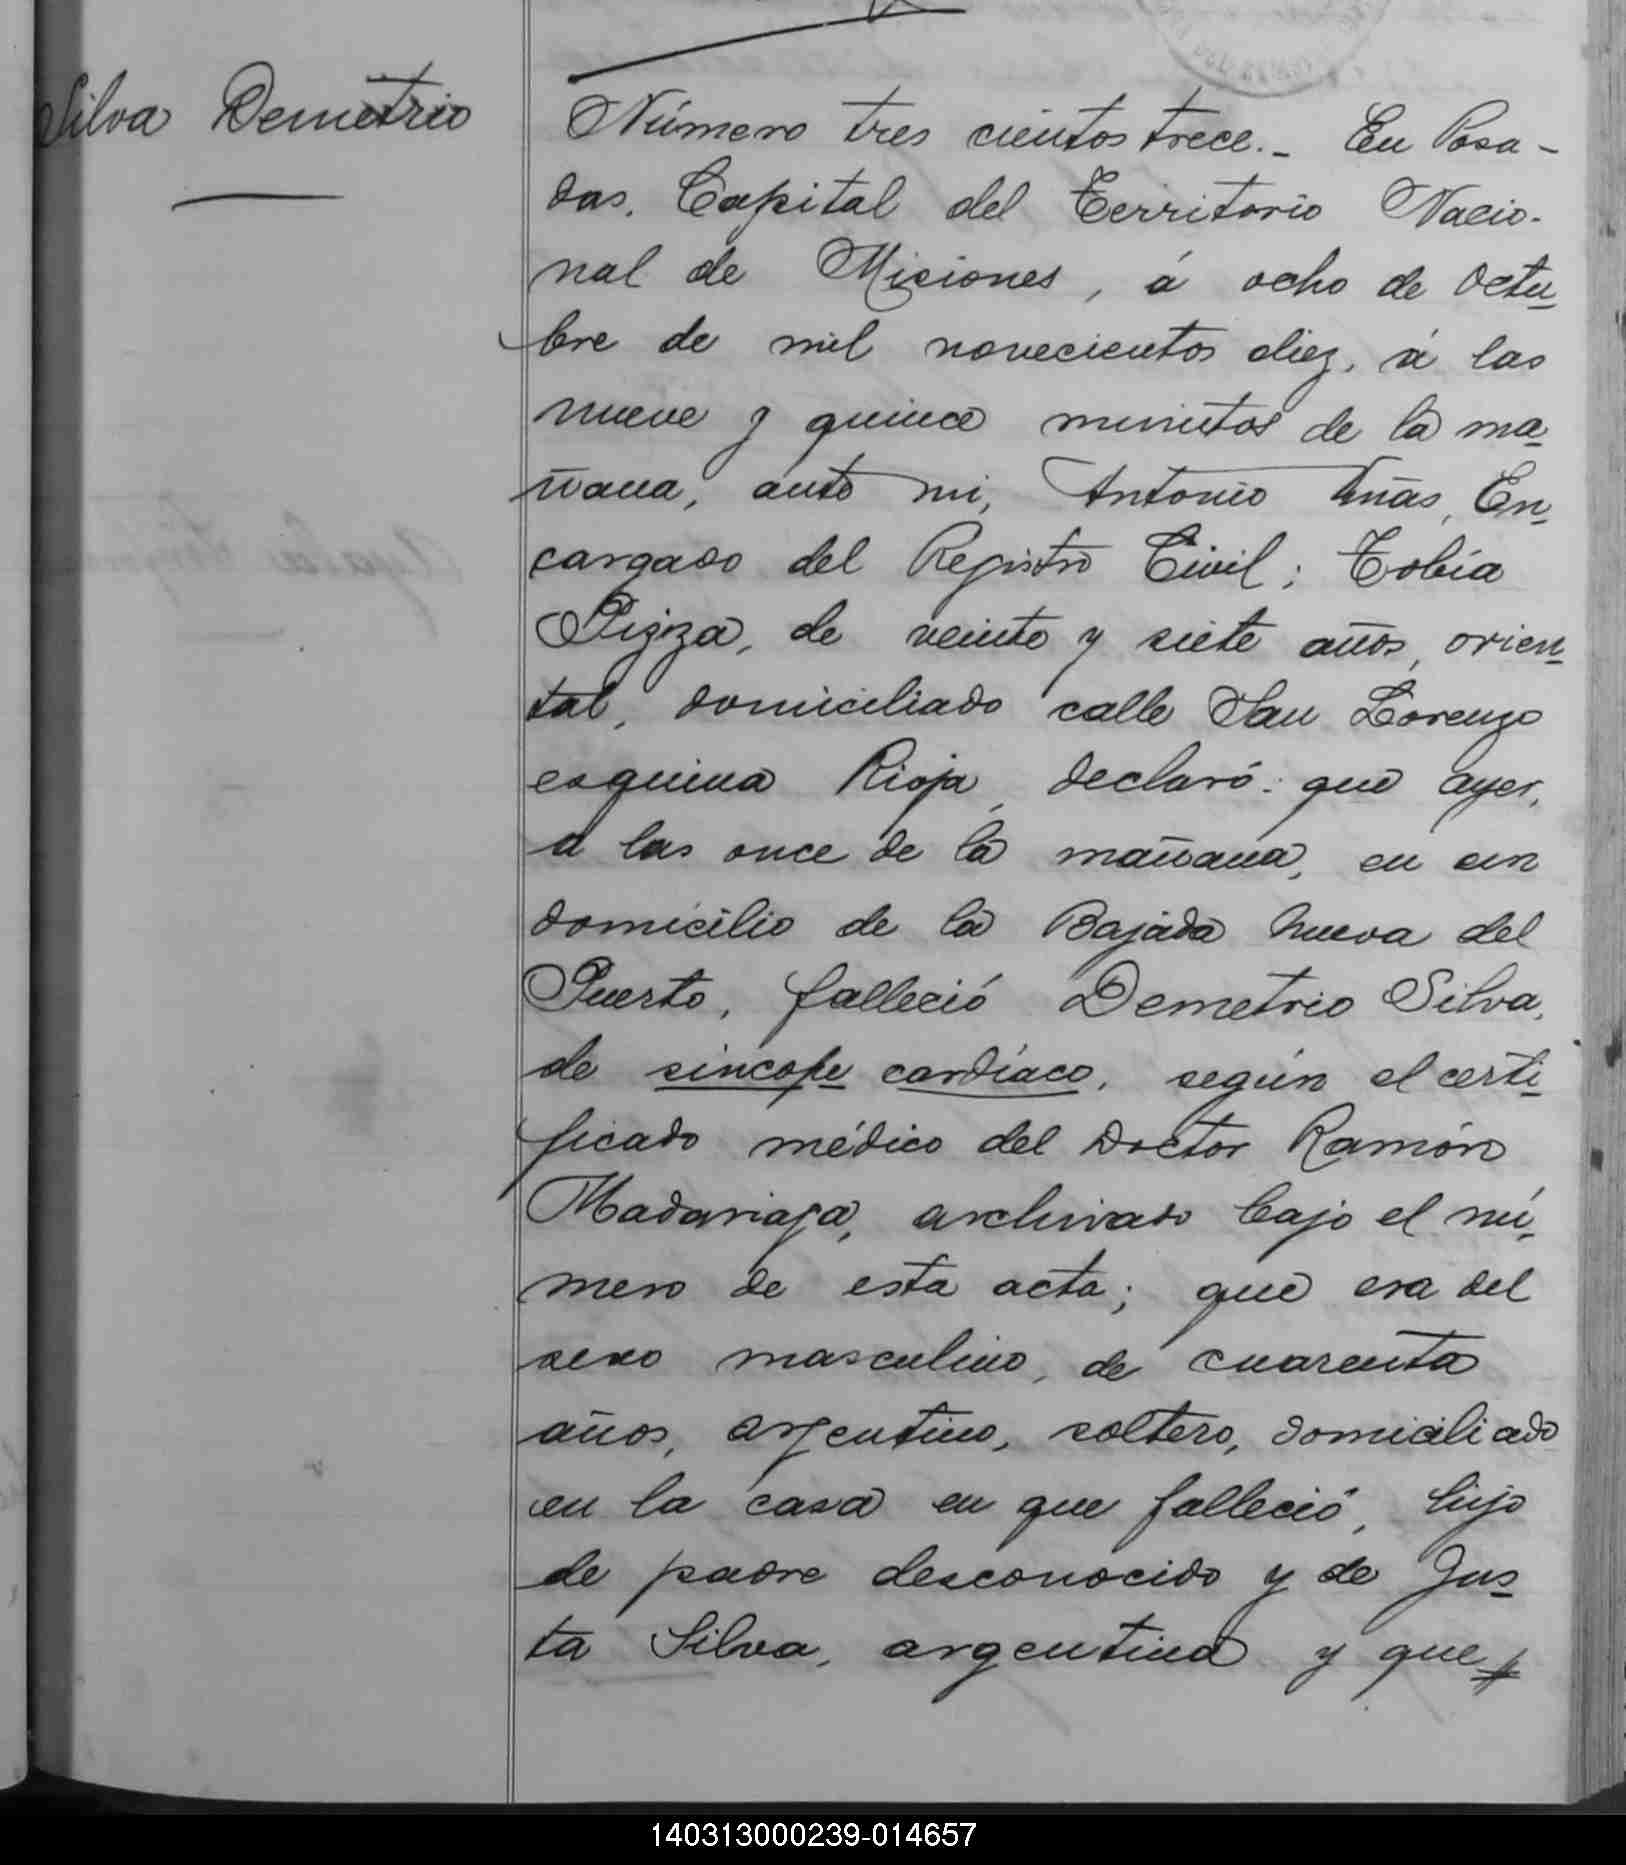 Silva Demetrio
Número tres cientos trece._ En Posa-
das, Capital del Territorio Nacio-
nal de Misiones, á ocho de Octu-
bre de mil novecientos diez, á las
nueve y quince minutos de la ma-
ñana, ante mi, Antonio Encargado En-
cargado del Registro Civil; Tobía
Pizza, de veinte y siete años, orien-
tal, domiciliado calle San Lorenzo
esquina Rioja, declaró: que ayer,
a las once de la mañana, en un
domicilio de la Bajada nueva del
Puerto, falleció Demetrio Silva,
de síncope cardíaco, según el certi-
ficado médico del Doctor Ramón
Madariaga, archivado bajo el nú-
mero de esta acta; que era del
sexo masculino, de cuarenta
años, argentino, soltero, domiciliado
en la casa en que falleció, hijo
de padre desconocido y de Jus-
ta Silva, argentina y que
140313000239-014657